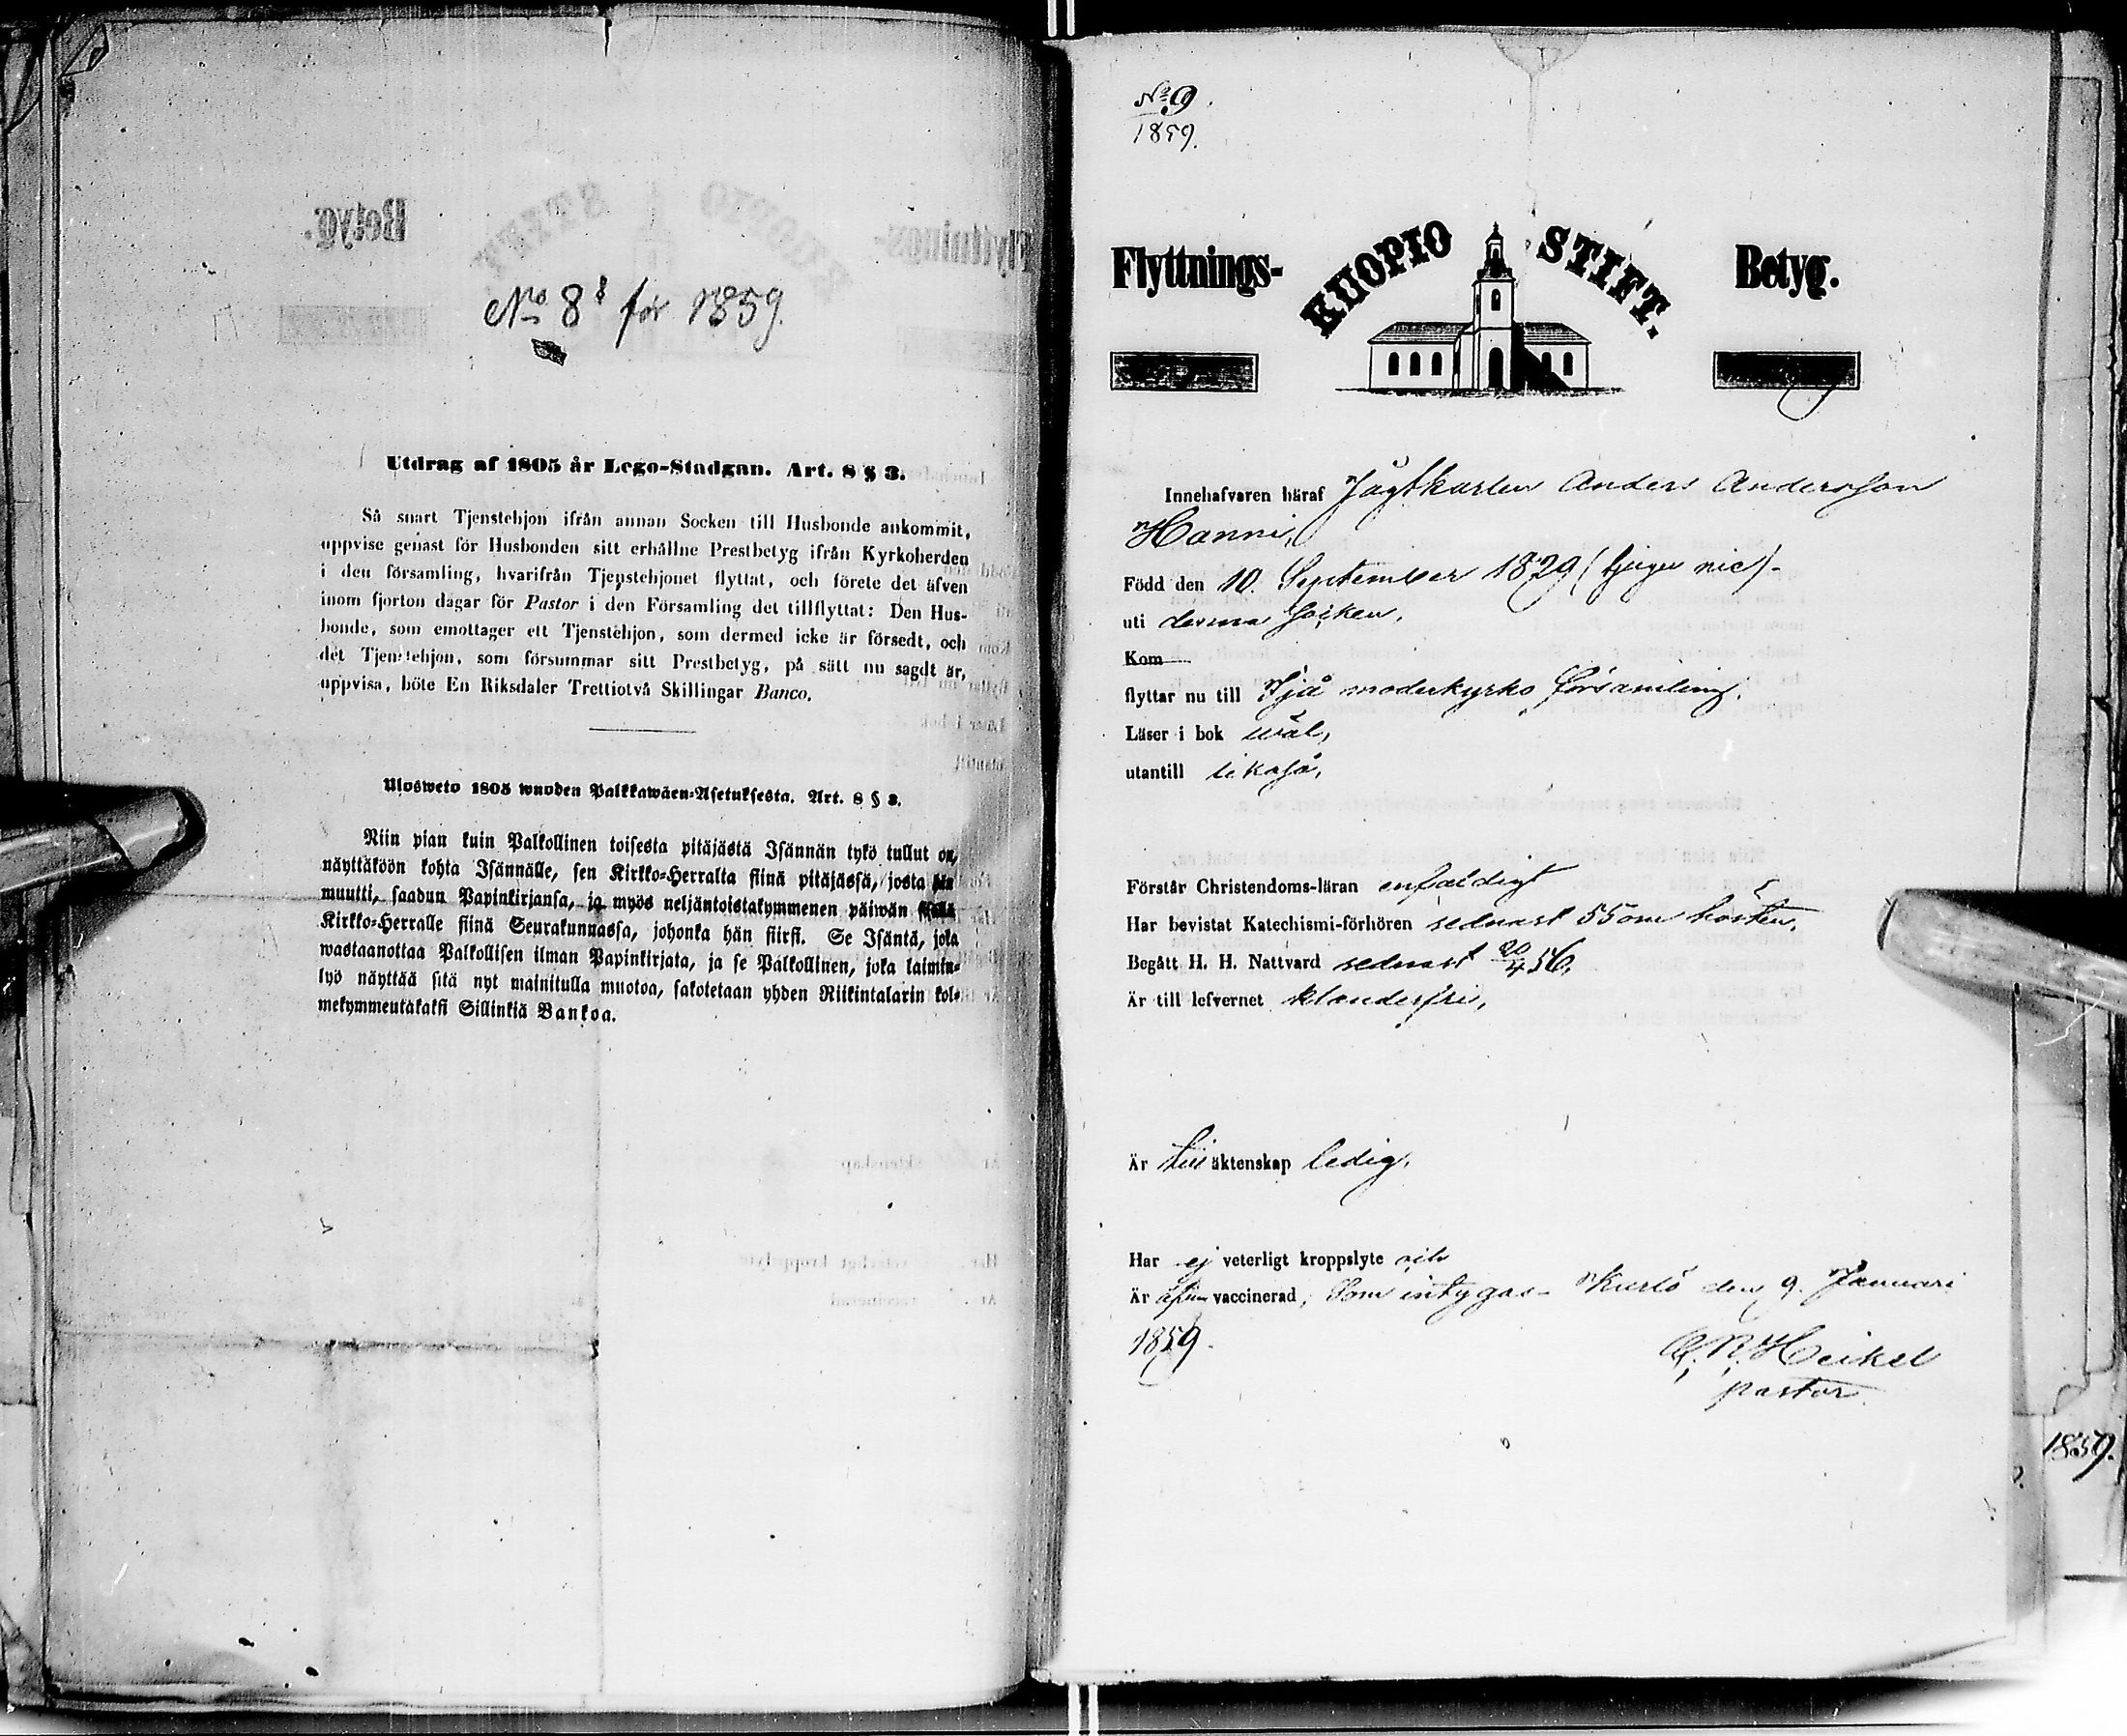 No 8 för 1859.
Utdrag af 1805 år Lego-Stadgan. Art. 8 § 3.
Så snart Tjenstehjon ifrån annan Socken till Husbonde ankommit,
uppvise genast för Husbonden sitt erhållne Prestbetyg ifrån Kyrkoherden
i den församling, hvarifrån Tjenstehjonet flyttat, och förete det äfven
inom fjorton dagar för Pastor i den Församling det tillflyttat: Den Hus-
bonde, som emottager ett Tjenstehjon, som dermed icke är försedt, och
det Tjenstehjon, som försummar sitt Prestbetyg, på sätt nu sagdt är,
uppvisa, böte En Riksdaler Trettiotvå Skillingar Banco.
Ulosweto 1805 wuoden Palkkawäen-Asetuksesta. Art. 8 § 3.
Niin pian kuin Palkollinen toisesta pitäjästä Isännän tykö tullut on,
näyttäköön kohta Isännälle, sen Kirkko-Herralta siinä pitäjässä, josta hän
muutti, saadun Papinkirjansa, ja myös neljäntoistakymmenen päiwän
Kirkko-Herralle siinä Seurakunnassa, johonka hän siirsi. Se Isäntä, joka
wastaanottaa Palkollisen ilman Papinkirjata, ja se Palkollinen, joka laimin-
lyö näyttää sitä nyt mainitulla muotoa, sakotetaan yhden Riikintalarin kol-
mekymmentäkaksi Sillinkiä Bankoa.
No 9.
1859.
Flyttnings- KUOPIO STIFT. Betyg.
Innehafvaren häraf Anders Andersson
Hanni,
Född den 10. September 1829 (tjugu nie)
uti denna Socken,
Kom
flyttar nu till Ijå moderkyrko församling.
Läser i bok wäl,
utantill likaså,
Förstår Christendoms-läran enfaldigt
Har bevistat Katechismi-förhören sednast 55 om hösten,
Begått H. H. Nattvard sednast 20/4 56,
Är till lefvernet klanderfri,
Är till äktenskap ledig,
Har ej veterligt kroppslyte och
Är äfven vaccinerad, Som intygas Karlö den 9. Januari
1859.
Heikel
pastor.
1859.